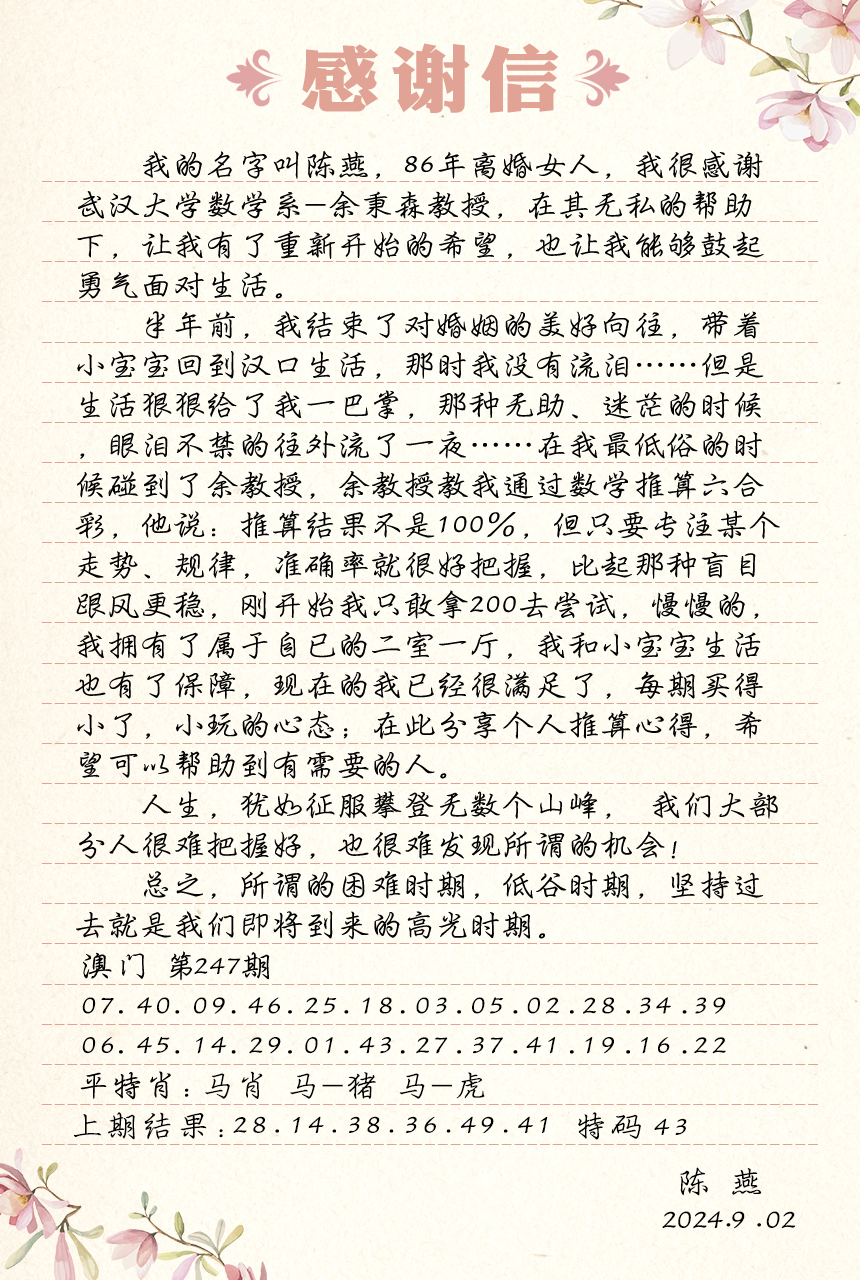 感谢信
我的名字叫陈燕，86年离婚女人，我很感谢
武汉大学数学系—余秉森教授，在其无私的帮助
下，让我有了重新开始的希望，也让我能够鼓起
勇气面对生活。
半年前，我结束了对婚姻的美好向往，带着
小宝宝回到汉口生活，那时我没有流泪……但是
生活狠狠给了我一巴掌，那种无助、迷茫的时候
，眼泪不禁的往外流了一夜……在我最低俗的时
候碰到了余教授，余教授教我通过数学推算六合
彩，他说：推算结果不是100%，但只要专注某个
走势、规律，准确率就很好把握，比起那种盲目
跟风更稳，刚开始我只敢拿200去尝试，慢慢的，
我拥有了属于自已的二室一厅，我和小宝宝生活
也有了保障，现在的我已经很满足了，每期买得
小了，小玩的心态；在此分享个人推算心得，希
望可以帮助到有需要的人。
人生，犹如征服攀登无数个山峰， 我们大部
分人很难把握好，也很难发现所谓的机会！
总之，所谓的困难时期，低谷时期，坚持过
去就是我们即将到来的高光时期。
澳门 第247期
07.40.09.46.25.18.03.05.02.28.34.39
06.45.14.29.01.43.27.37.41.19.16.22
平特肖：马肖 马—猪 马—虎
上期结果：28.14.38.36.49.41 特码 43
陈 燕
2024.9.02